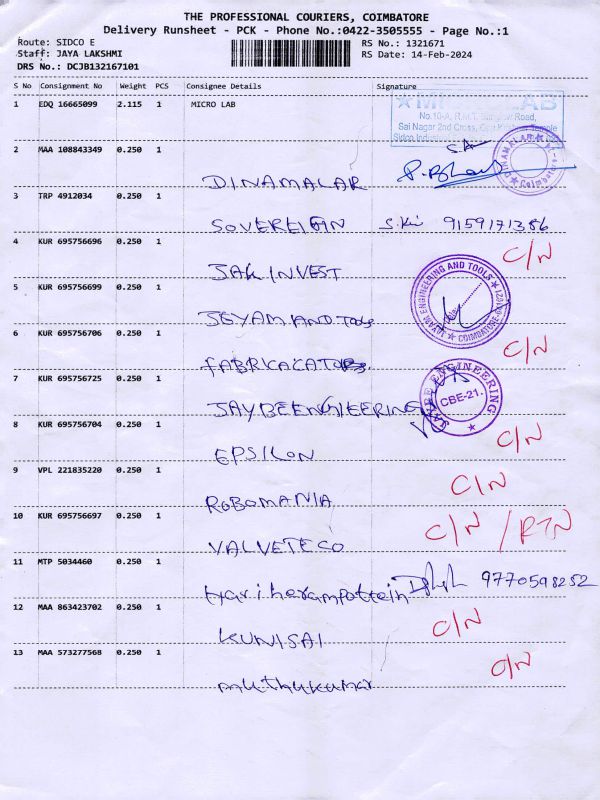 THE PROFESSIONAL COURIERS, COIMBATORE
Delivery Runsheet - PCK - Phone No.:0422-3505555 - Page No.:1
Route: SIDCO E
RS No.: 1321671
Staff: JAYA LAKSHMI
RS Date: 14-Feb-2024
DRS No.: DCJB132167101
S No Consignment No Weight PCS Consignee Details Signature
1 EDQ 16665099 2.115 1 MICRO LAB
LAB
No.10-A, R.M.T. Road,
Sai Nagar 2nd Cross, Temple
Sidco
2 MAA 108843349 0.250 1
DINAMALAR
DINAMALAR
Coimbatore
3 TRP 4912034 0.250 1
SOVEREIGN 9159171386
4 KUR 695756696 0.250 1 C/N
JAK INVEST
5 KUR 695756699 0.250 1
JEYAM ENGINEERING AND TOOLS
COIMBATORE-641021
JEYAM AND Tools
6 KUR 695756706 0.250 1 C/N
FABRICACATORS
7 KUR 695756725 0.250 1
ENGINEERING
CBE-21.
JAYBEENGIEERING
8 KUR 695756704 0.250 1 C/N
EPSILON
9 VPL 221835220 0.250 1 C/N
ROBOMANIA
10 KUR 695756697 0.250 1 C/N / RTN
VALVETECO
11 MTP 5034460 0.250 1
Hariharampottein 9770598252
12 MAA 863423702 0.250 1 C/N
KUNISAI
13 MAA 573277568 0.250 1 C/N
muthukumar